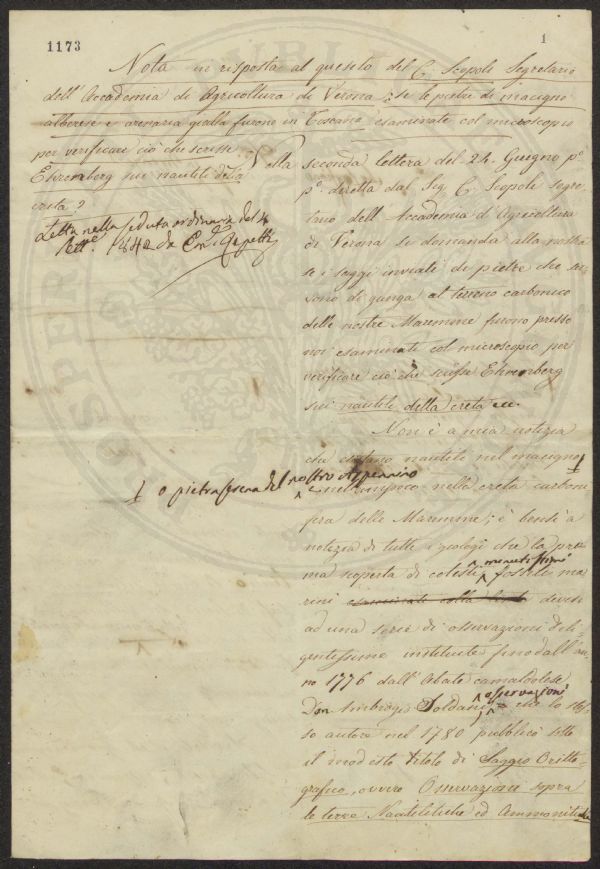 1173
1
Nota in risposta al quesito del C. Scopoli Segretario
dell'Accademia di Agricoltura di Verona; se le pietre di macigno
alberese e arenaria gialla furono in Toscana esaminate col microscopio
per verificare ciò che scrisse
Ehremberg sui nautili della
creta?
Letta nella seduta ordinaria del 4
Sett.e 1842 da Em. Repetti
Nella
seconda lettera del 24. Giugno p.o
p.o diretta dal Sig. C. Scopoli Segre
tario dell'Accademia d'Agricoltura
di Verona si domanda alla nostra
se i saggi inviati di pietre che ser
vono di ganga al terreno carbonico
delle nostre Maremme furono presso
noi esaminati col microscopio per
verificare ciò che scrisse Ehremberg
sui nautili della creta ec.
Non è a mia notizia
che esistano nautili nel macigno
o pietra serena del nostro Appennino
e nemmpoco nella creta carboni
fera delle Maremme; è bensì a
notizia di tutti i geologi che la pri
ma scoperta di cotesti minutissimi fossili ma
rini esaminati colla lente devesi
ad una serie di osservazioni dili
gentissime instituite fino dall'an
no 1776 dall'Abate camaldolese
Don Ambrogio Soldani, osservazioni che lo stes
so autore nel 1780 pubblicò sotto
il modesto titolo di Saggio Oritto
grafico, ovvero Osservazioni sopra
le terre Nautilitiche ed Ammonitiche